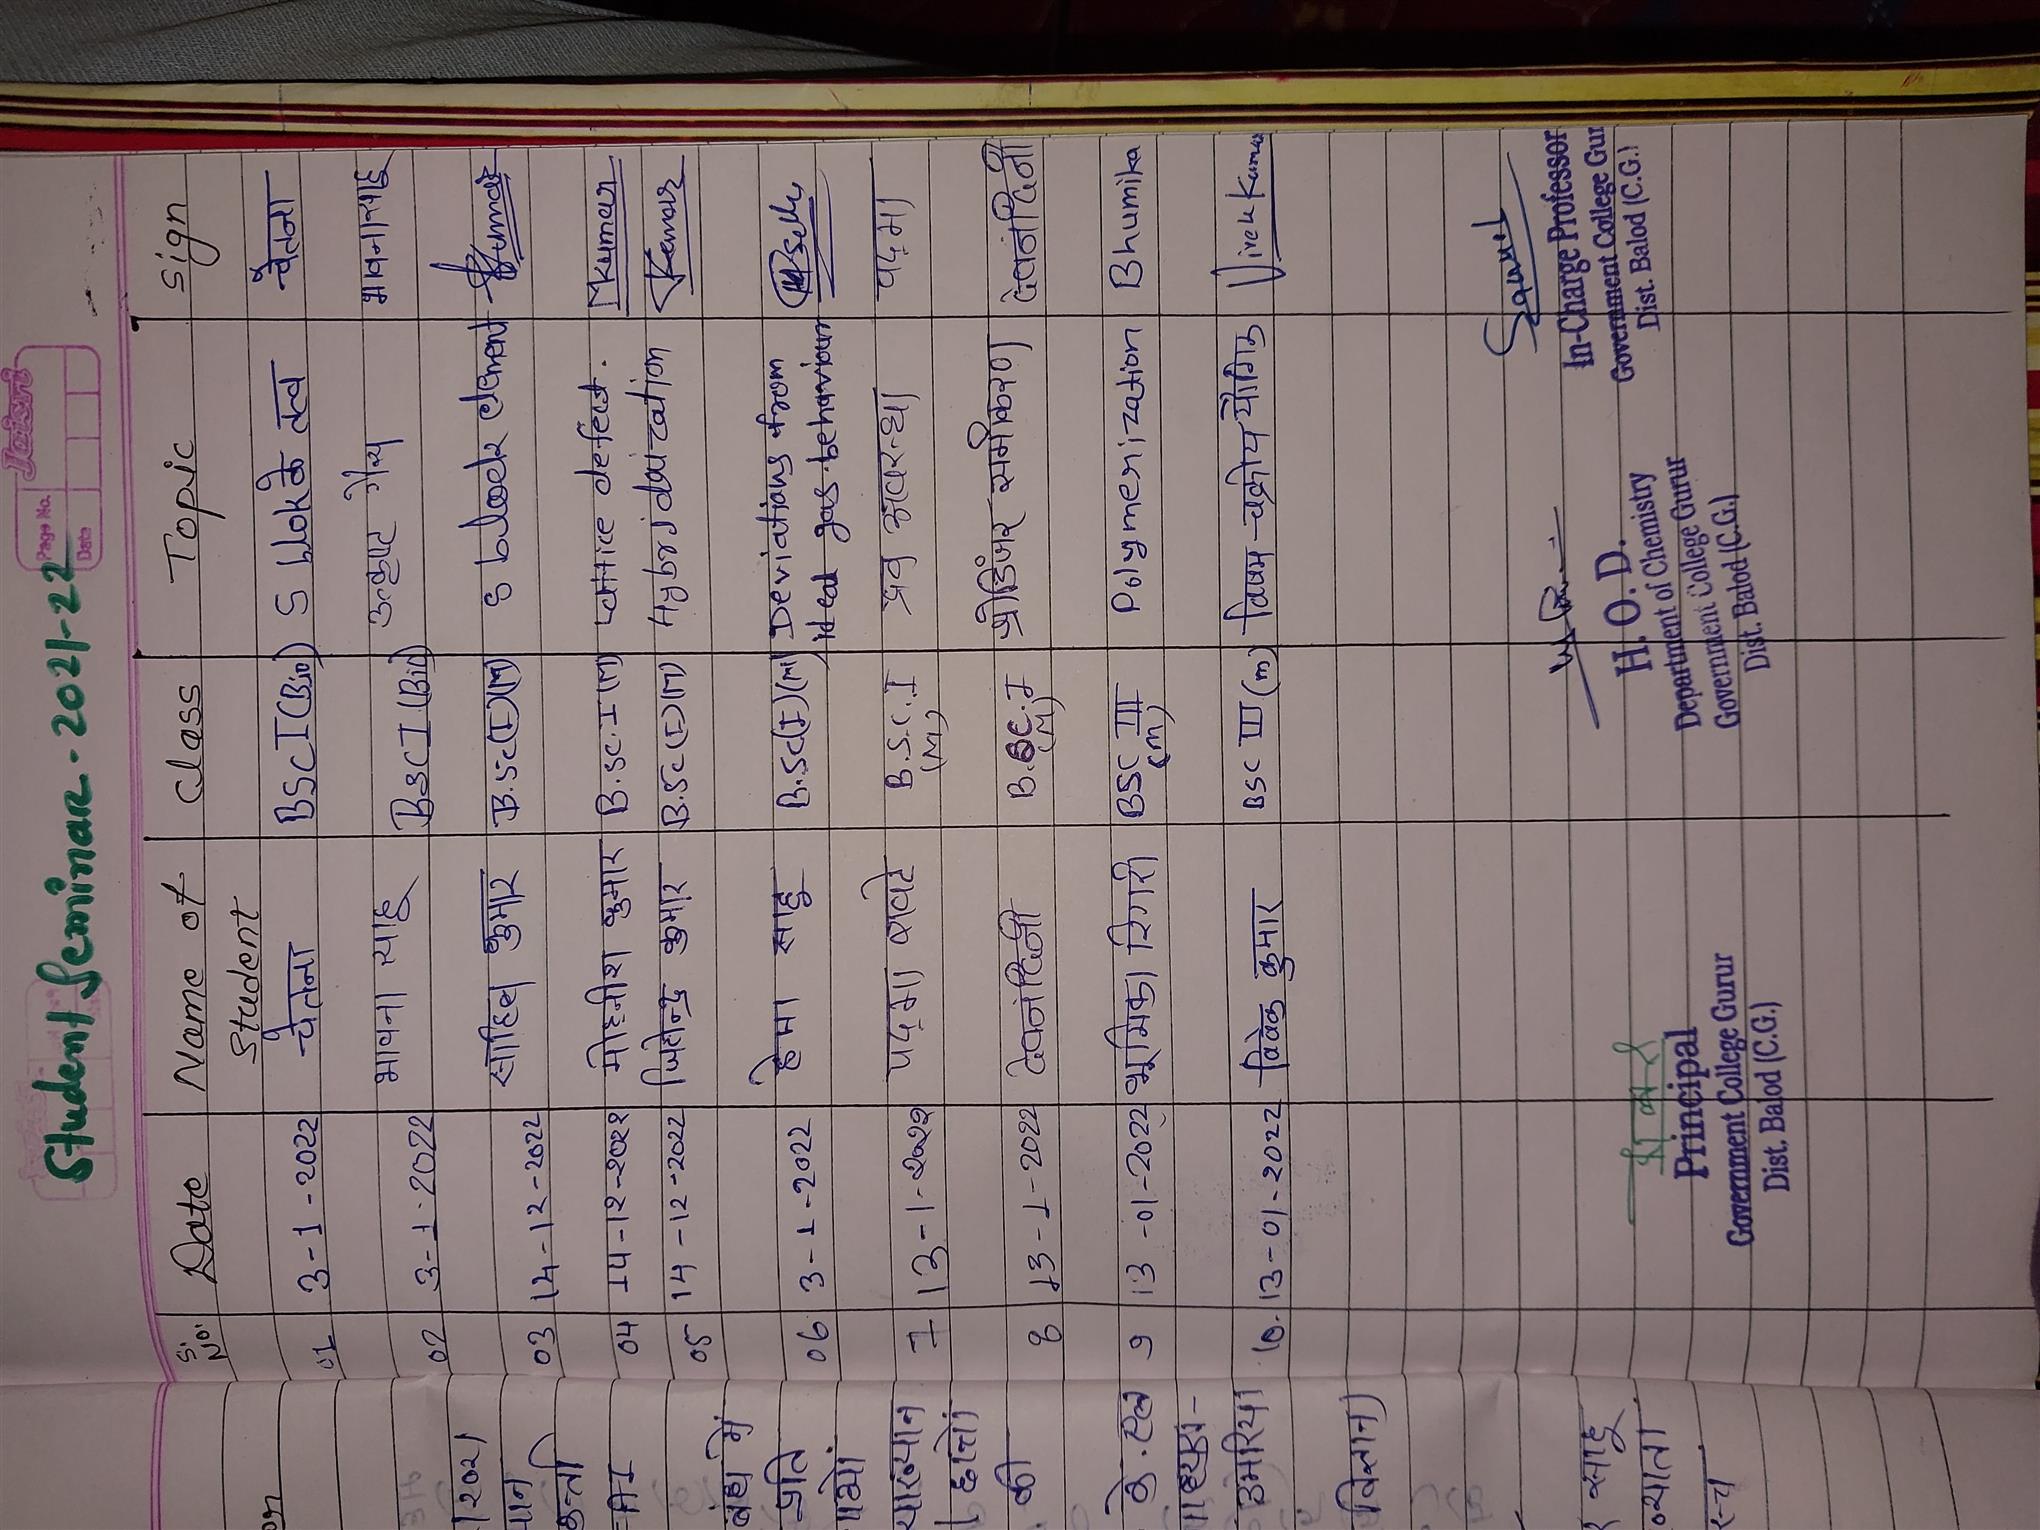 Jaisri
Page No.
Date
Student Seminar - 2021-22
S. No. Date Name of Student Class Topic Sign
01 3-1-2022 चेतना BSC I (Bio) S block के तत्व चेतना
02 3-1-2022 भावना साहू BSC I (Bio) उत्कृष्ट गैस भावना साहू
03 14-12-2022 साहिल कुमार B.Sc(I)(M) S block element Kumar
04 14-12-2022 मोहनीश कुमार B.SC.I(M) lattice defect. MKumar
05 14-12-2022 जितेन्द्र कुमार B.SC(I)(M) Hybridaization Kumar
06 3-1-2022 हेमा साहू B.SC(I)(M) Deviations from
ideal gas behaviour
7 13-1-2022 पद्मा B.S.C.I (M) द्रव अवस्था पद्मा
8 13-1-2022 देवनंदिनी B.SC.I (M) श्रोडिंजर समीकरण देवनंदिनी
9 13-01-2022 भूमिका BSC III (M) Polymerization Bhumika
10. 13-01-2022 विवेक कुमार BSC III (m) विषम-चक्रीय यौगिक Vivek Kumar
Principal
Government College Gurur
Dist. Balod (C.G.)
H. O. D.
Department of Chemistry
Government College Gurur
Dist. Balod (C.G.)
In-Charge Professor
Government College Gur
Dist. Balod (C.G.)
2021
बंध में
प्रति
की
विज्ञान)
साहू